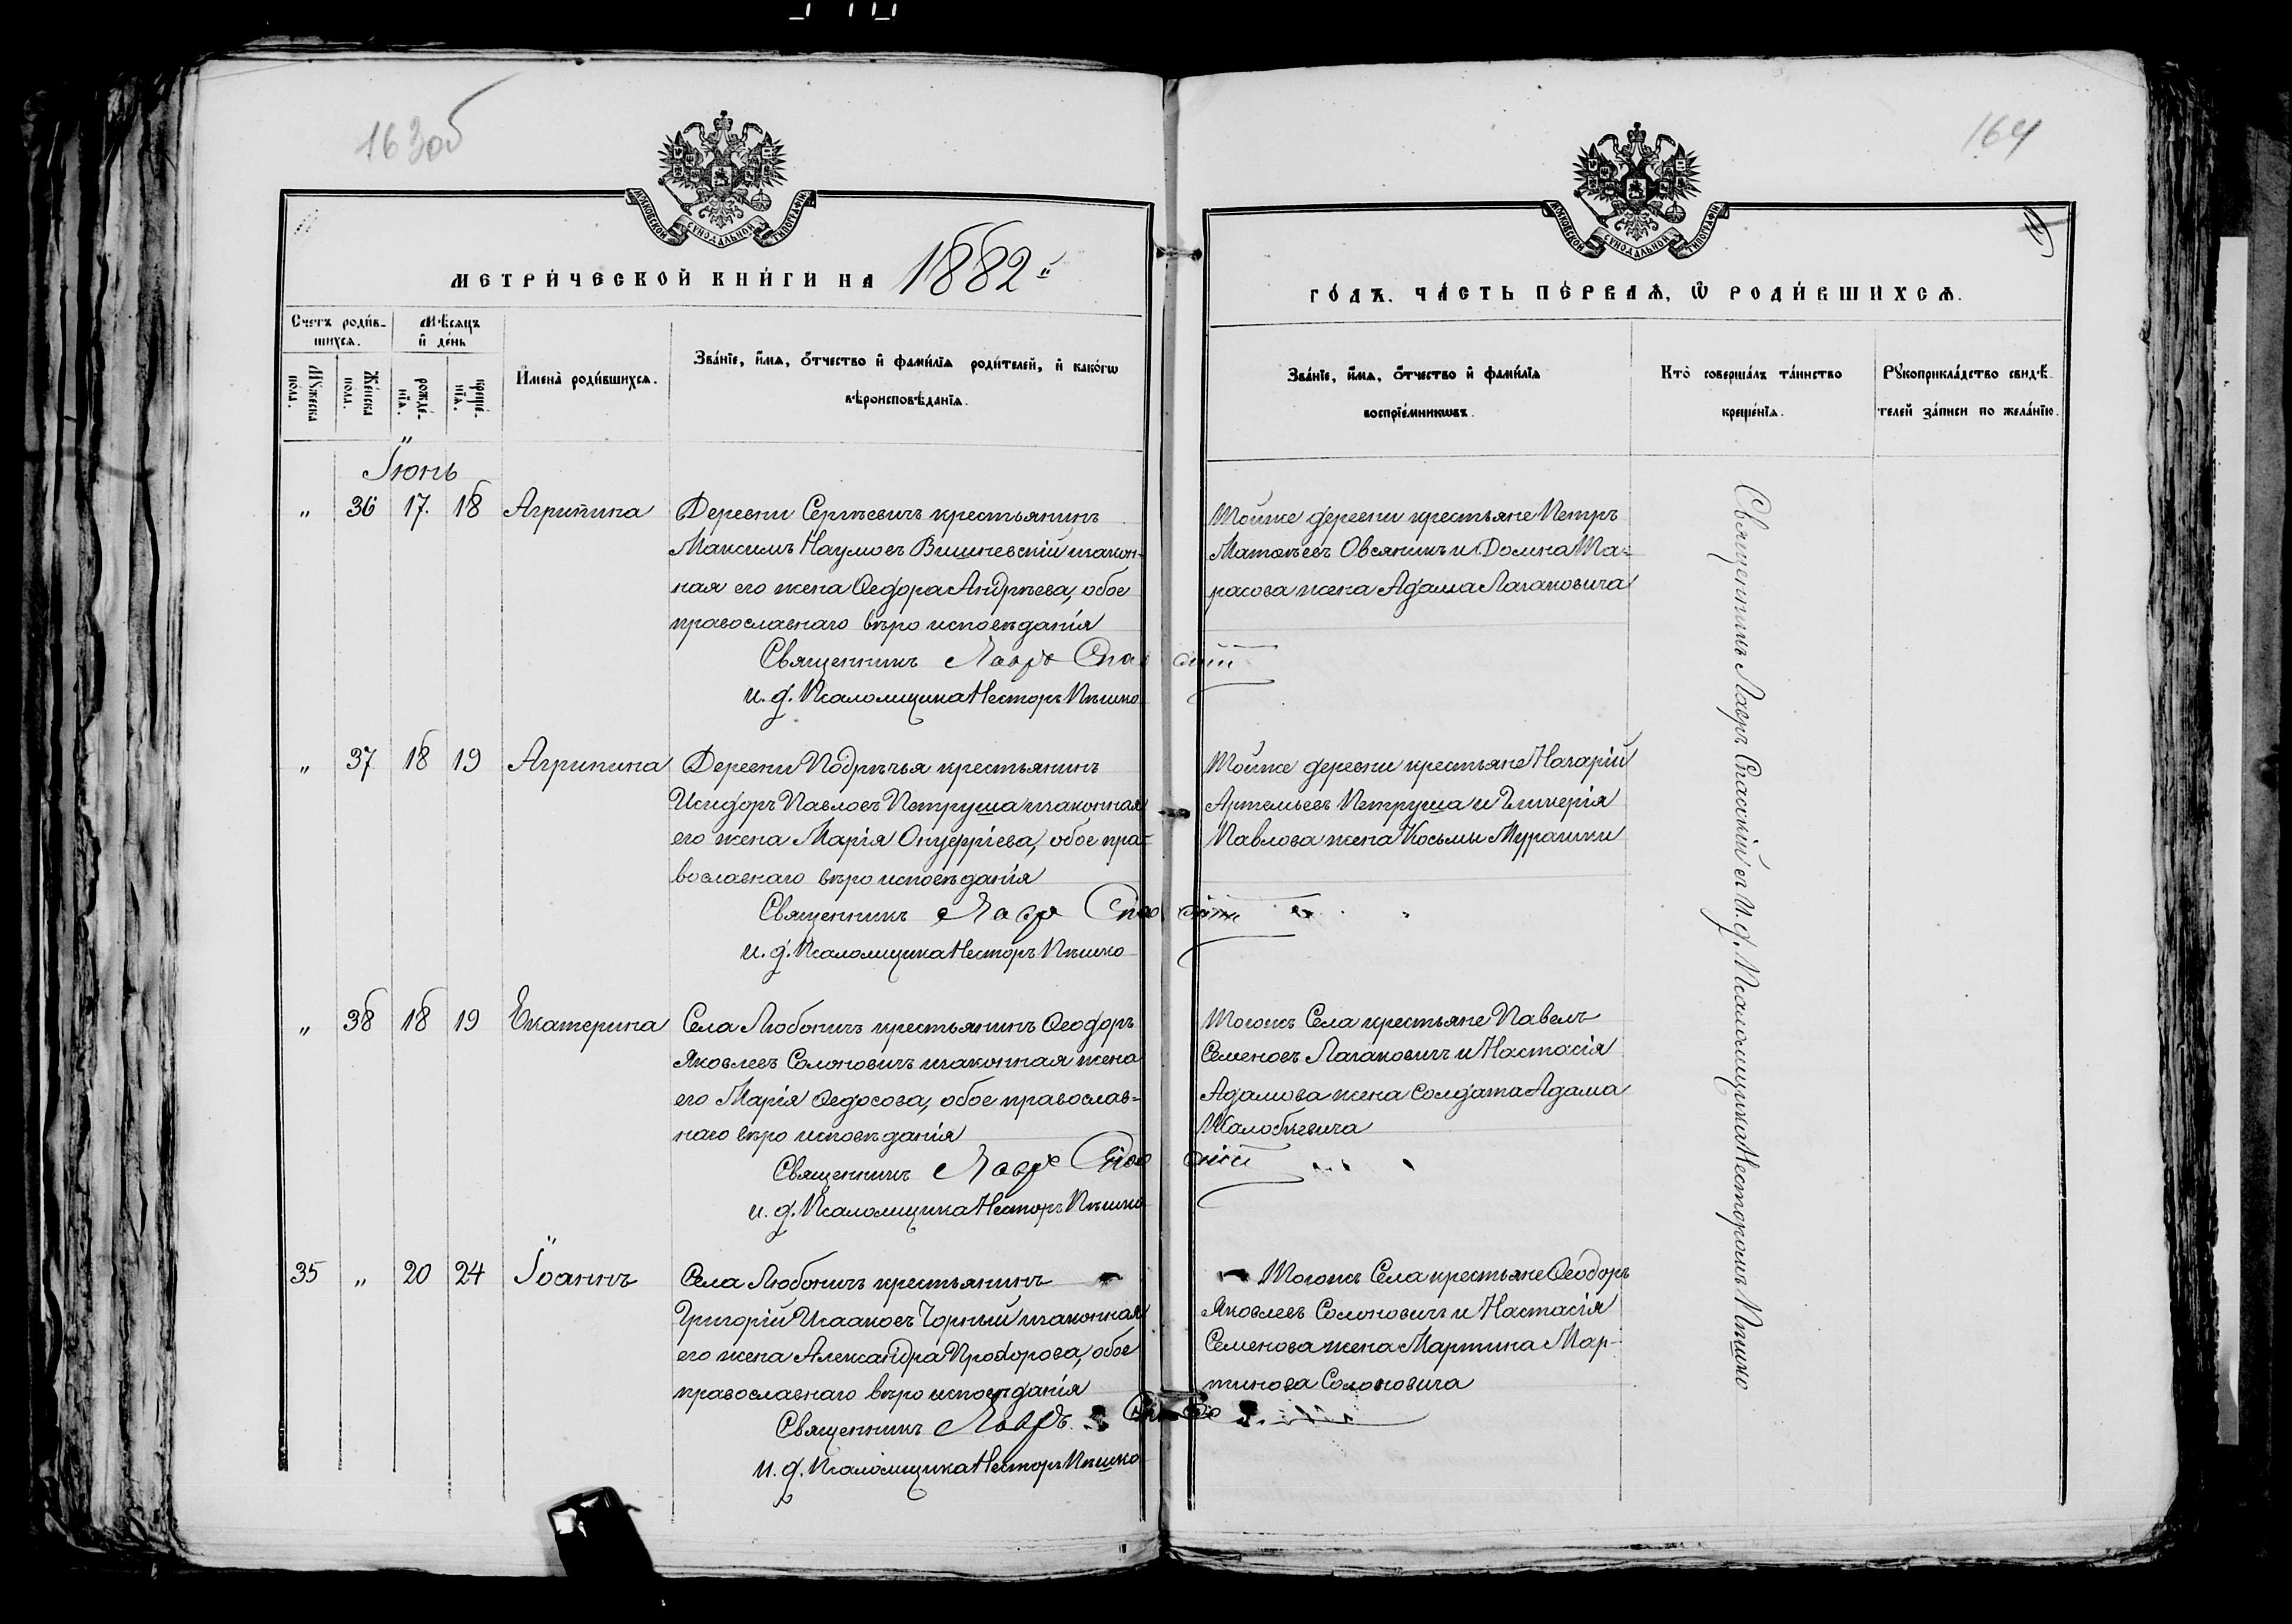 163об
164
МОСКОВСКОЙ СѴНОДАЛЬНОЙ ТИПОГРАФІИ
МОСКОВСКОЙ СѴНОДАЛЬНОЙ ТИПОГРАФІИ
МЕТРИ́ЧЕСКОЙ КНИ́ГИ НА 1882
ГО́ДЪ. ЧА́СТЬ ПЕ́РВАѦ, Ѽ РОДИ́ВШИХСѦ.
Счетъ роди́в-
шихсѧ.
Мѣсѧцъ
и҆ де́нь
Мꙋжеска
по́ла.
Же́нска
по́ла.
рожде́-
нїѧ.
креще́-
нїѧ.
И҆мена̀ роди́вшихсѧ.
Зва́нїе, и҆́мѧ, ѻ҆́тчество и҆ фами́лїѧ роди́телей, и҆ како́гѡ
вѣроисповѣ́данїѧ.
Зва́нїе, и҆́мѧ, ѻ҆́тчество и҆ фами́лїѧ
воспрїе́мникѡвъ.
Кто̀ соверша́лъ та́инство
креще́нїѧ.
Рꙋкоприкла́дство свидѣ́-
телей за́писи по жела́нїю.
Іюнь
„ 36 17. 18 Агрипина
Деревни Сергѣевичъ крестьянинъ
Максимъ Наумовъ Вишневскій и закон-
ная его жена Ѳедора Андрѣева, обое
православнаго вѣроисповѣданія
Священникъ Лавръ Спасскій
и. д. Псаломщика Несторъ Пѣшко
Тойже деревни крестьяне Петръ
Матвѣевъ Овсяникъ и Домна Та-
расова жена Адама Лагановича
„ 37 18 19 Агрипина
Деревни Подрѣчья крестьянинъ
Исидоръ Павловъ Петруша и законная
его жена Марія Онуфріева, обое пра-
вославнаго вѣроисповѣданія
Священникъ Лавръ Спасскій
и. д. Псаломщика Несторъ Пѣшко
Тойже деревни крестьяне Назарій
Артемьевъ Петруша и Гликерія
Павлова жена Косьмы Мурашки
„ 38 18 19 Екатерина
Села Любоничъ крестьянинъ Ѳеодоръ
Яковлевъ Солоновичъ и законная жена
его Марія Ѳедосова, обое православ-
наго вѣроисповѣданія
Священникъ Лавръ Спасскій
и. д. Псаломщика Несторъ Пѣшко
Тогожъ Села крестьяне Павелъ
Семеновъ Лаганович и Настасія
Адамова жена солдата Адама
Жалобкевича
35 „ 20 24 Іоаннъ
Села Любоничъ крестьянинъ
Григорій Исааковъ Чорный и законная
его жена Александра Прохорова, обое
православнаго вѣроисповѣданія
Священникъ Лавръ
и. д. Псаломщика Несторъ Пѣшко
Тогожъ Села крестьяне Ѳеодоръ
Яковлевъ Солоновичъ и Настасія
Семенова жена Мартина Мар-
тинова Солоновича
Священникъ Лавръ Спасскій съ И. д. Псаломщика Несторомъ Пѣшко